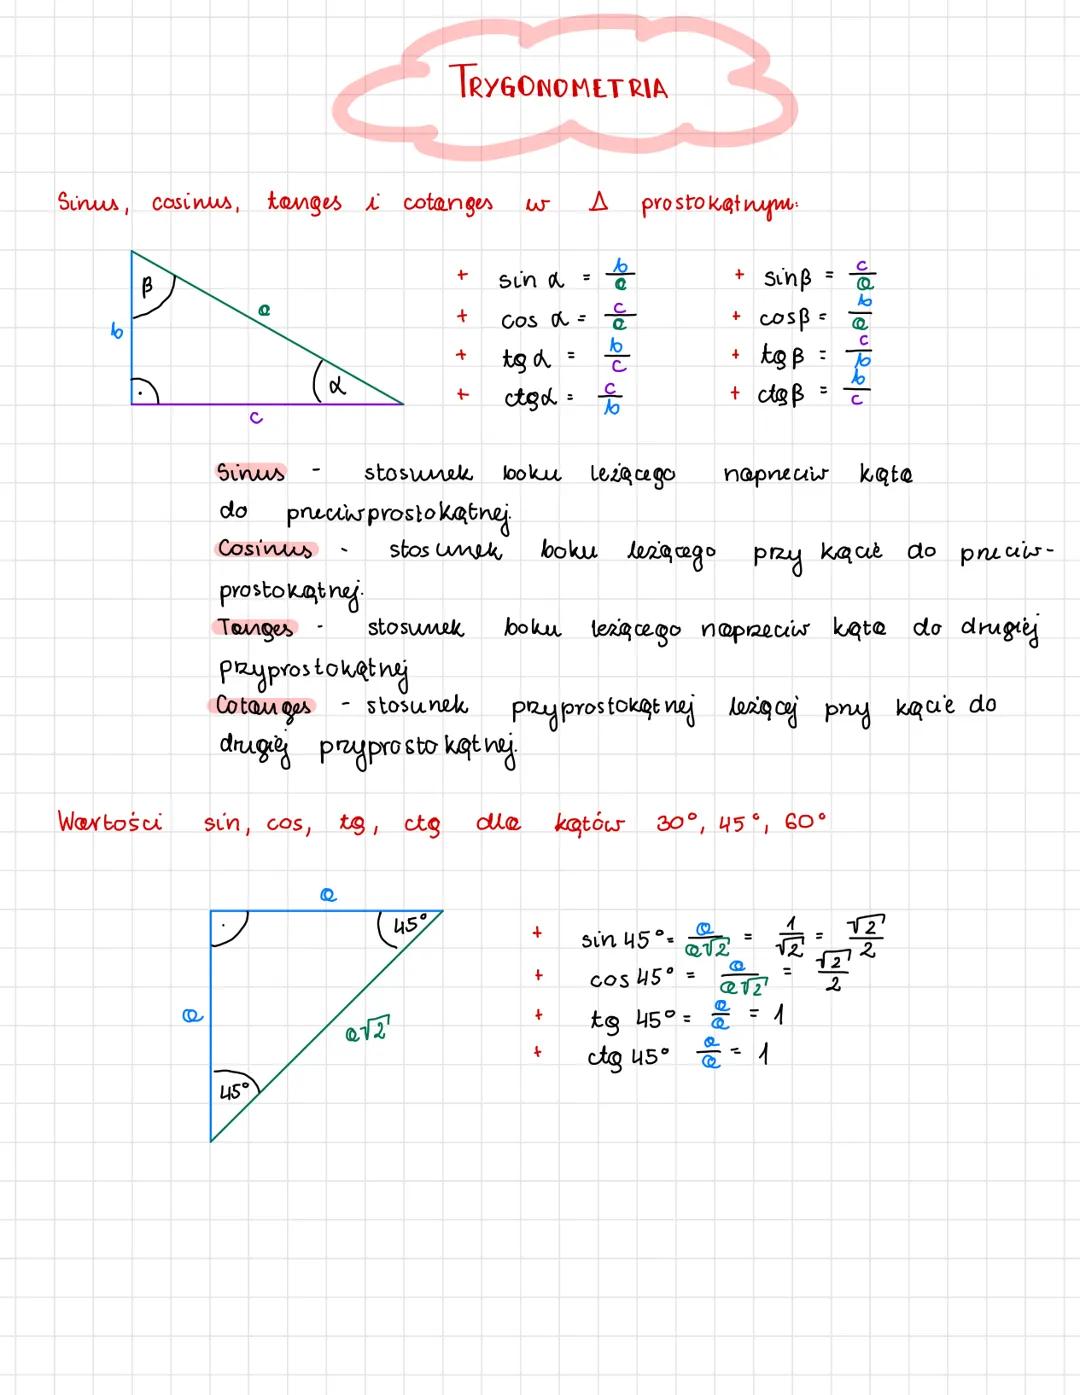 TRYGONOMETRIA
Sinus, cosinus, tanges i cotanges w Δ prostokątnym:
β
b
a
α
c
+ sin α = b/a
+ cos α = c/a
+ tg α = b/c
+ ctgα = c/b
+ sinβ = c/a
+ cosβ = b/a
+ tgβ = c/b
+ ctgβ = b/c
Sinus - stosunek boku leżącego naprzeciw kąta
do przeciwprostokątnej.
Cosinus - stosunek boku leżącego przy kącie do przeciw-
prostokątnej.
Tanges - stosunek boku leżącego naprzeciw kąta do drugiej
przyprostokątnej
Cotanges - stosunek przyprostokątnej leżącej przy kącie do
drugiej przyprostokątnej.
Wartości sin, cos, tg, ctg dla kątów 30°, 45°, 60°
a
45°
a
a√2
45°
+ sin 45° = a/a√2 = 1/√2 = √2/2
+ cos 45° = a/a√2 = √2/2
+ tg 45° = a/a = 1
+ ctg 45° a/a = 1